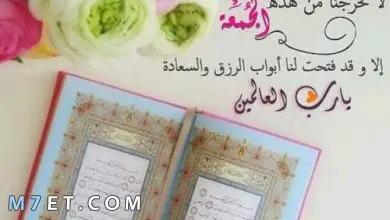 لا تخرجنا من هذه
الجمعة
إلا و قد فتحت لنا أبواب الرزق والسعادة
يارب العالمين
M7ET.COM